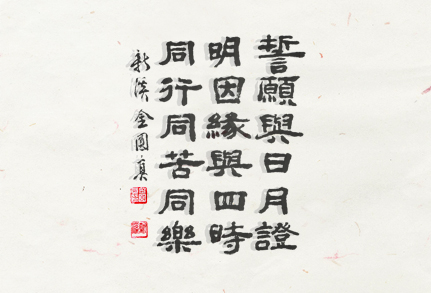 誓願與日月證
明因緣與四時
同行同苦同樂
金國真